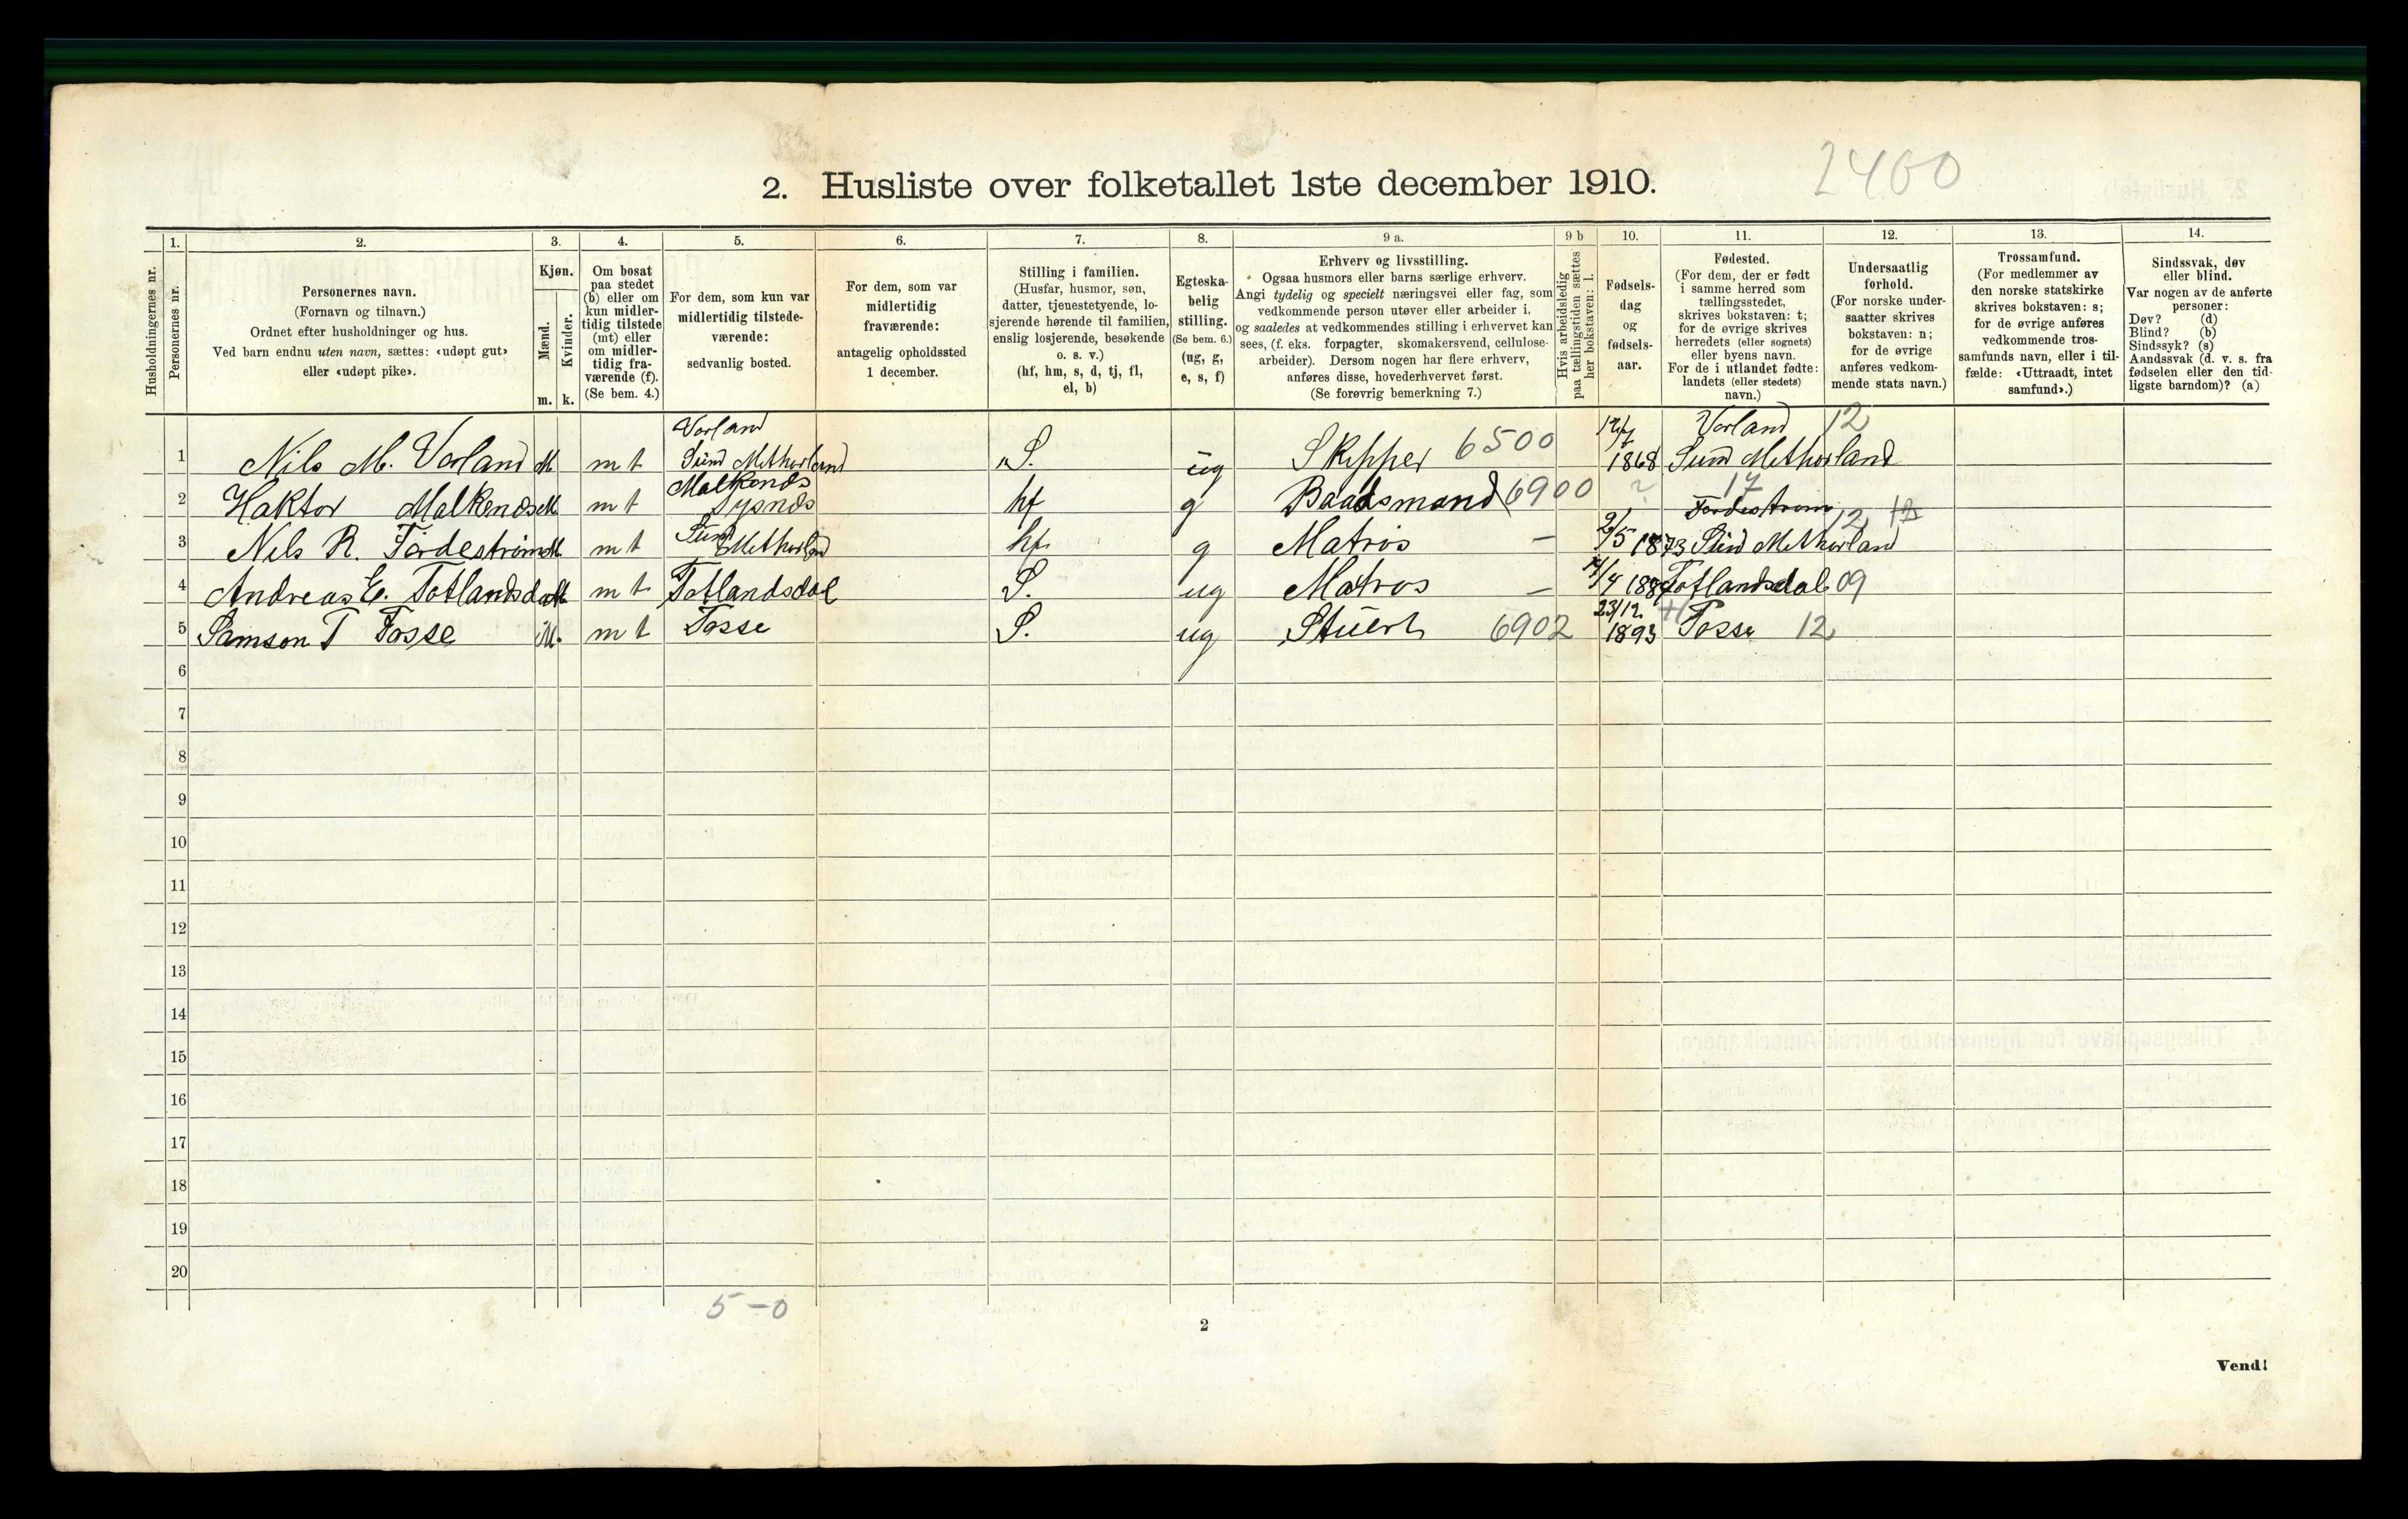 2. Husliste over folketallet 1ste december 1910.
2400
Husholdningernes nr.
1.
Personernes nr.
2.
Personernes navn.
(Fornavn og tilnavn.)
Ordnet efter husholdninger og hus.
Ved barn endnu uten navn, sættes: «udøpt gut»
eller «udøpt pike».
3.
Kjøn.
Mænd.
Kvinder.
m. k.
4.
Om bosat
paa stedet
(b) eller om
kun midler-
tidig tilstede
(mt) eller
om midler-
tidig fra-
værende (f).
(Se bem. 4.)
5.
For dem, som kun var
midlertidig tilstede-
værende:
sedvanlig bosted.
6.
For dem, som var
midlertidig
fraværende:
antagelig opholdssted
1 december.
7.
Stilling i familien.
(Husfar, husmor, søn,
datter, tjenestetyende, lo-
sjerende hørende til familien,
enslig losjerende, besøkende
o. s. v.)
(hf, hm, s, d, tj, fl,
el, b)
8.
Egteska-
belig
stilling.
(Se bem. 6.)
(ug, g,
e, s, f)
9 a.
Erhverv og livsstilling.
Ogsaa husmors eller barns særlige erhverv.
Angi tydelig og specielt næringsvei eller fag, som
vedkommende person utøver eller arbeider i,
og saaledes at vedkommendes stilling i erhvervet kan
sees, (f. eks. forpagter, skomakersvend, cellulose-
arbeider). Dersom nogen har flere erhverv,
anføres disse, hovederhvervet først.
(Se forøvrig bemerkning 7.)
9 b
Hvis arbeidsledig
paa tællingstiden sættes
her bokstaven: l.
10.
Fødsels-
dag
og
fødsels-
aar.
11.
Fødested.
(For dem, der er født
i samme herred som
tællingsstedet,
skrives bokstaven: t;
for de øvrige skrives
herredets (eller sognets)
eller byens navn.
For de i utlandet fødte:
landets (eller stedets)
navn.)
12.
Undersaatlig
forhold.
(For norske under-
saatter skrives
bokstaven: n;
for de øvrige
anføres vedkom-
mende stats navn.)
13.
Trossamfund.
(For medlemmer av
den norske statskirke
skrives bokstaven: s;
for de øvrige anføres
vedkommende tros-
samfunds navn, eller i til-
fælde: «Uttraadt, intet
samfund».)
14.
Sindssvak, døv
eller blind.
Var nogen av de anførte
personer:
Døv? (d)
Blind? (b)
Sindssyk? (s)
Aandssvak (d. v. s. fra
fødselen eller den tid-
ligste barndom)? (a)
Vorland Vorland 12
1 Nils M. Vorland M m t Sund Methorland S. ug Skipper 6500 1868 Sund Methorland
Malkends 17
2 Haktor Malkends M m t Tysnds hf g Baadsmand 6900 ?
Sund Fordestrøm 12
3 Nils R. Fordestrøm M m t Methorland hf. g Matros — 2/5 1873 Sund Methorland
4 Andreas E. Totlandsdal M m t Totlandsdal S. ug Matros — Totlandsdal 09
5 Samson T Fosse M. m t Fosse S. ug Stuert 6902 23/12 1893 Fosse 12
6
7
8
9
10
11
12
13
14
15
16
17
18
19
20
5 - 0
2
Vend!